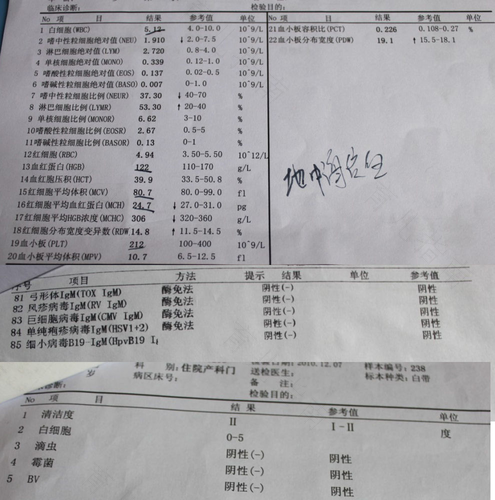 临床诊断: 检验目的:
No 项 目 结果 参考值 单位
1 白细胞(WBC) 5.12 4.0-10.0 10^9/L
2 嗜中性粒细胞绝对值(NEU) 1.910 ↓ 2.0-7.5 10^9/L
3 淋巴细胞绝对值(LYM) 2.720 0.8-4.0 10^9/L
4 单核细胞绝对值(MONO) 0.339 0.12-1.0 10^9/L
5 嗜酸性粒细胞绝对值(EOS) 0.137 0.02-0.5 10^9/L
6 嗜碱性粒细胞绝对值(BASO) 0.007 0-1.0 10^9/L
7 嗜中性粒细胞比例(NEUR) 37.30 ↓ 40-70 %
8 淋巴细胞比例(LYMR) 53.30 ↑ 20-40 %
9 单核细胞比例(MONOR) 6.62 3-10 %
10嗜酸性粒细胞比例(EOSR) 2.67 0.5-5 %
11嗜碱性粒细胞比例(BASOR) 0.13 0-1 %
12红细胞(RBC) 4.94 3.50-5.50 10^12/L
13血红蛋白(HGB) 122 110-170 g/L
14血红细胞压积(HCT) 39.9 33.5-50.8 %
15红细胞平均体积(MCV) 80.7 80.0-99.0 fl
16红细胞平均血红蛋白(MCH) 24.7 ↓ 27.0-31.0 pg
17红细胞平均HGB浓度(MCHC) 306 ↓ 320-360 g/L
18红细胞分布宽度变异数(RDW 14.8 ↑ 11.5-14.5 %
19血小板(PLT) 212 100-400 10^9/L
20血小板平均体积(MPV) 10.7 6.5-12.5 fl
21血小板容积比(PCT) 0.226 0.108-0.27 %
22血小板分布宽度(PDW) 19.1 ↑ 15.5-18.1
地中海
序号 项目 方法 提示 结果 单位 参考值
81 弓形体IgM(TOX IgM) 酶免法 阴性(-) 阴性
82 风疹病毒IgM(RV IgM) 酶免法 阴性(-) 阴性
83 巨细胞病毒IgM(CMV IgM) 酶免法 阴性(-) 阴性
84 单纯疱疹病毒IgM(HSV1+2) 酶免法 阴性(-) 阴性
85 细小病毒B19-IgM(HpvB19 I 酶免法 阴性(-) 阴性
岁 科 别: 住院产科门 2010.12.07 样本编号: 238
病区床号: 送检医生: 标本种类: 白带
备 注:
临床诊断: 检验目的:
No 项 目 结果 参考值 单位
1 清洁度 II I-II 度
2 白细胞 0-5
3 滴虫 阴性(-) 阴性
4 霉菌 阴性(-) 阴性
5 BV 阴性(-) 阴性